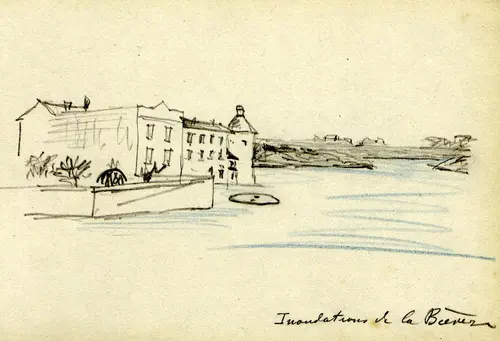 Inondations de la Bièvre